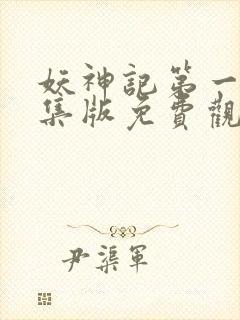 妖神記第一
集版免費觀
尹渠軍